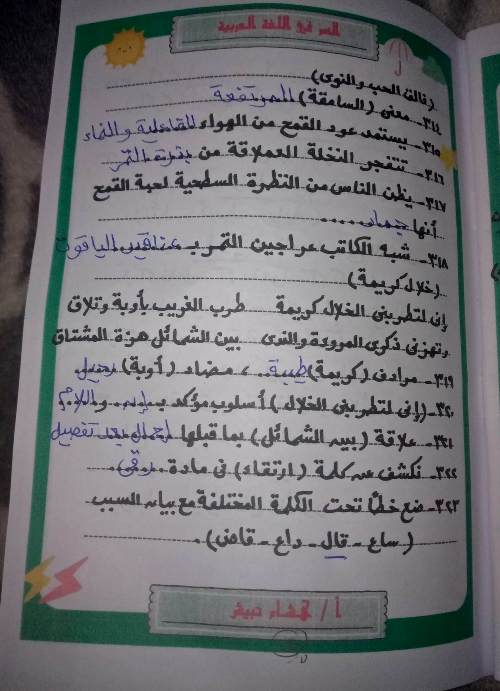 السر في اللغة العربية
(فالق الحب والنوى)
٣١٤- معنى (السامقة) المرتفعة
٣١٥- يستمد عود القمح من الهواء الفاعلية والنماء
٣١٦- تتفجر النخلة العملاقة من بقرة التمر
٣١٧- يظن الناس من النظرة السطحية لحبة القمح
أنها جماد
٣١٨- شبه الكاتب عراجين التمر بـ عناقيد الياقوت
(خلال كريمة)
إنى لتطربنى الخلال كريمة طرب الغريب بأوبة وتلاق
وتهزنى ذكرى المروءة والندى بين الشمائل هزة المشتاق
٣١٩- مرادف (كريمة) طيبة ، مضاد (أوبة) رحيل
٣٢٠- (إنى لتطربنى الخلال) أسلوب مؤكد بـ إن و اللام
٣٢١- علاقة (بين الشمائل) بما قبلها إجمال بعد تفصيل
٣٢٢- نكشف عن كلمة (ارتقاء) فى مادة (رقي).
٣٢٣- ضع خطًا تحت الكلمة المختلفة مع بيان السبب
(ساع - قال - داع - قاض).
أ /